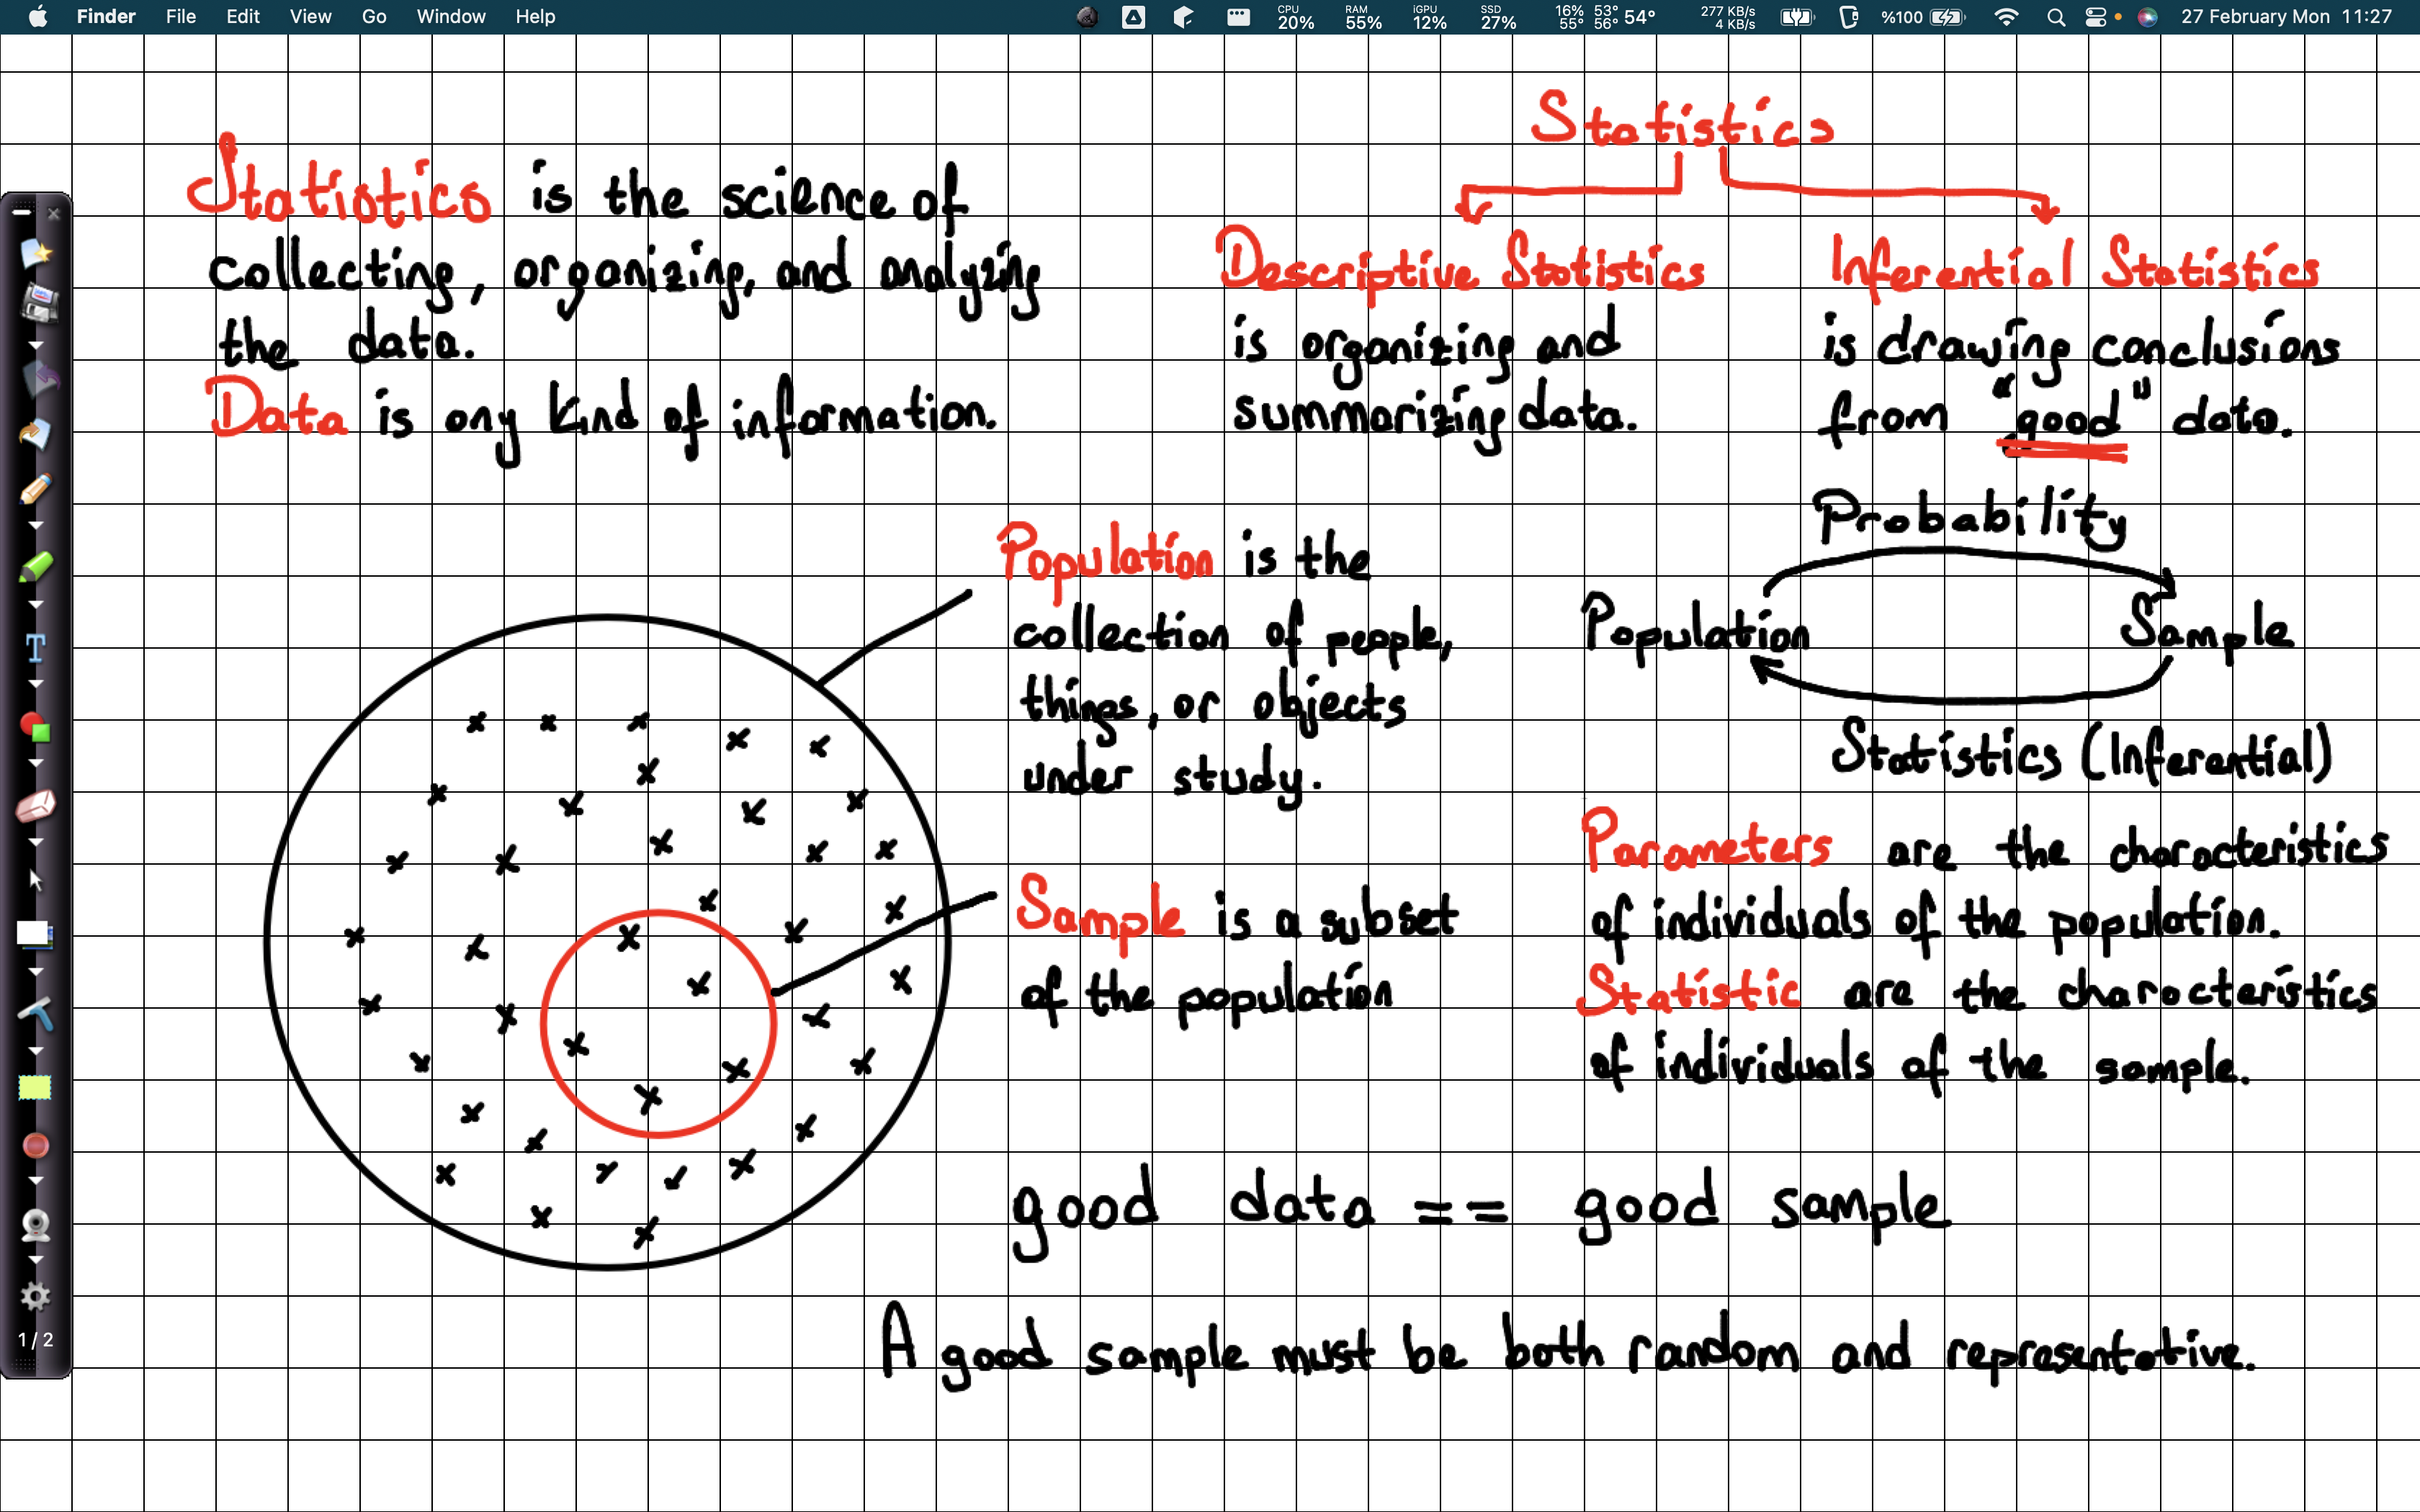 Finder File Edit View Go Window Help
CPU 20% RAM 55% iGPU 12% SSD 27% 16% 55° 53° 56° 54° 277 KB/s 4 KB/s %100 27 February Mon 11:27
Statistics is the science of
collecting, organizing, and analyzing
the data.
Data is any kind of information.
Statistics
Descriptive Statistics
is organizing and
summarizing data.
Inferential Statistics
is drawing conclusions
from "good" data.
Population is the
collection of people,
things, or objects
under study.
Sample is a subset
of the population
Probability
Population Sample
Statistics (Inferential)
Parameters are the characteristics
of individuals of the population.
Statistic are the characteristics
of individuals of the sample.
good data == good sample
A good sample must be both random and representative.
T
1/2